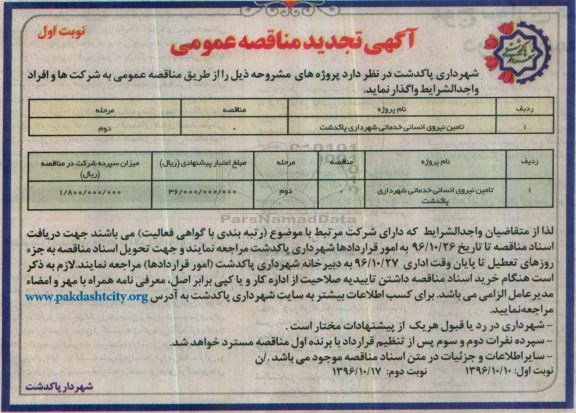 نوبت اول
آگهی تجدید مناقصه عمومی
شهرداری پاکدشت در نظر دارد پروژه های مشروحه ذیل را از طریق مناقصه عمومی به شرکت ها و افراد
واجدالشرایط واگذار نماید.
ردیف نام پروژه مناقصه مرحله
۱ تامین نیروی انسانی خدماتی شهرداری پاکدشت - دوم
ردیف نام پروژه مناقصه مرحله مبلغ اعتبار پیشنهادی (ریال) میزان سپرده شرکت در مناقصه
(ریال)
۱ تامین نیروی انسانی خدماتی شهرداری
پاکدشت دوم ۳۶/۰۰۰/۰۰۰/۰۰۰ ۱/۸۰۰/۰۰۰/۰۰۰
ParsNamadData
لذا از متقاضیان واجدالشرایط که دارای شرکت مرتبط با موضوع (رتبه بندی یا گواهی فعالیت) می باشند جهت دریافت
اسناد مناقصه تا تاریخ ۹۶/۱۰/۲۶ به امور قراردادها شهرداری پاکدشت مراجعه نمایند و جهت تحویل اسناد مناقصه به جزء
روزهای تعطیل تا پایان وقت اداری ۹۶/۱۰/۲۷ به دبیرخانه شهرداری پاکدشت (امور قراردادها) مراجعه نمایند.لازم به ذکر
است هنگام خرید اسناد مناقصه داشتن تاییدیه صلاحیت از اداره کار و یا کپی برابر اصل، معرفی نامه همراه با مهر و امضاء
مدیرعامل الزامی می باشد. برای کسب اطلاعات بیشتر به سایت شهرداری پاکدشت به آدرس www.pakdashtcity.org
مراجعه نمایید.
– شهرداری در رد یا قبول هریک از پیشنهادات مختار است .
– سپرده نفرات دوم و سوم پس از تنظیم قرارداد با برنده اول مناقصه مسترد خواهد شد.
– سایر اطلاعات و جزئیات در متن اسناد مناقصه موجود می باشد ./ن
نوبت اول: ۱۳۹۶/۱۰/۱۰ نوبت دوم: ۱۳۹۶/۱۰/۱۷
شهردار پاکدشت